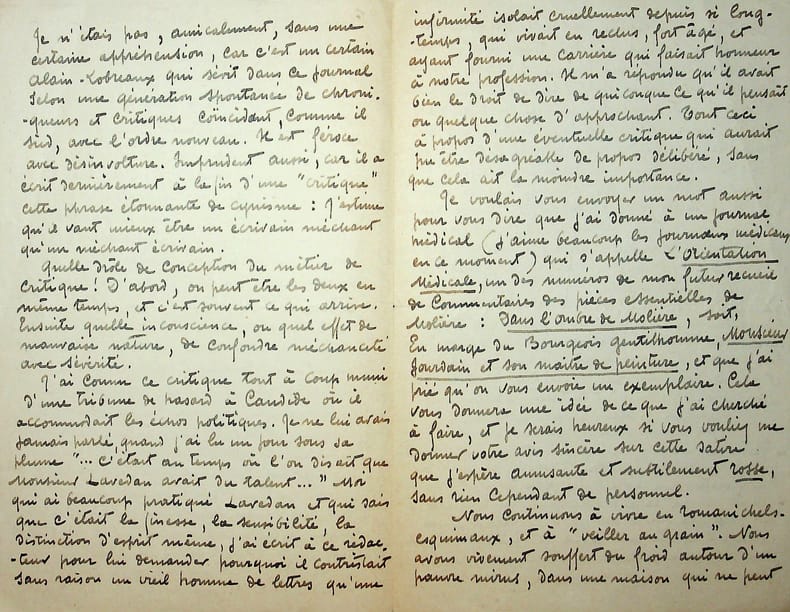 Je n'étais pas, amicalement, sans une
certaine appréhension, car c'est un certain
Alain-Lobreaux qui sévit dans ce journal
selon une génération spontanée de chroni-
-queurs et critiques coïncidant, comme il
sied, avec l'ordre nouveau. Il est féroce
avec désinvolture. Imprudent aussi, car il a
écrit dernièrement à la fin d'une "critique"
cette phrase étonnante de cynisme : J'estime
qu'il vaut mieux être un écrivain méchant
qu'un méchant écrivain.
Quelle drôle de conception du métier de
critique ! D'abord, on peut être les deux en
même temps, et c'est souvent ce qui arrive.
Ensuite quelle inconscience, ou quel effet de
mauvaise nature, de confondre méchanceté
avec sévérité.
J'ai connu ce critique tout à coup muni
d'une tribune de hasard à Candide où il
accommodait les échos politiques. Je ne lui avais
jamais parlé, quand j'ai lu un jour sous sa
plume "... c'était au temps où l'on disait que
Monsieur Lavedan avait du talent..." Moi
qui ai beaucoup pratiqué Lavedan et qui sais
que c'était la finesse, la sensibilité, la
distinction d'esprit même, j'ai écrit à ce rédac-
-teur pour lui demander pourquoi il contristait
sans raison un vieil homme de lettres qu'une
infirmité isolait cruellement depuis si long-
temps, qui vivait en reclus, fort âgé, et
ayant fourni une carrière qui faisait honneur
à notre profession. Il m'a répondu qu'il avait
bien le droit de dire de quiconque ce qu'il pensait
ou quelque chose d'approchant. Tout ceci
à propos d'une éventuelle critique qui aurait
pu être désagréable de propos délibéré, sans
que cela ait la moindre importance.
Je voulais vous envoyer un mot aussi
pour vous dire que j'ai donné à un journal
médical (j'aime beaucoup les journaux médicaux
en ce moment) qui s'appelle L'Orientation
Médicale, un des numéros de mon futur recueil
de Commentaires des pièces essentielles de
Molière : Dans l'ombre de Molière, soit,
En marge du Bourgeois gentilhomme, Monsieur
Jourdain et son maître de peinture, et que j'ai
prié qu'on vous envoie un exemplaire. Cela
vous donnera une idée de ce que j'ai cherché
à faire, et je serais heureux si vous vouliez me
donner votre avis sincère sur cette satire
que j'espère amusante et subtilement rosse,
sans rien cependant de personnel.
Nous continuons à vivre en romanichels-
esquimaux, et à "veiller au grain". Nous
avons vivement souffert du froid autour d'un
pauvre mirus, dans une maison qui ne peut